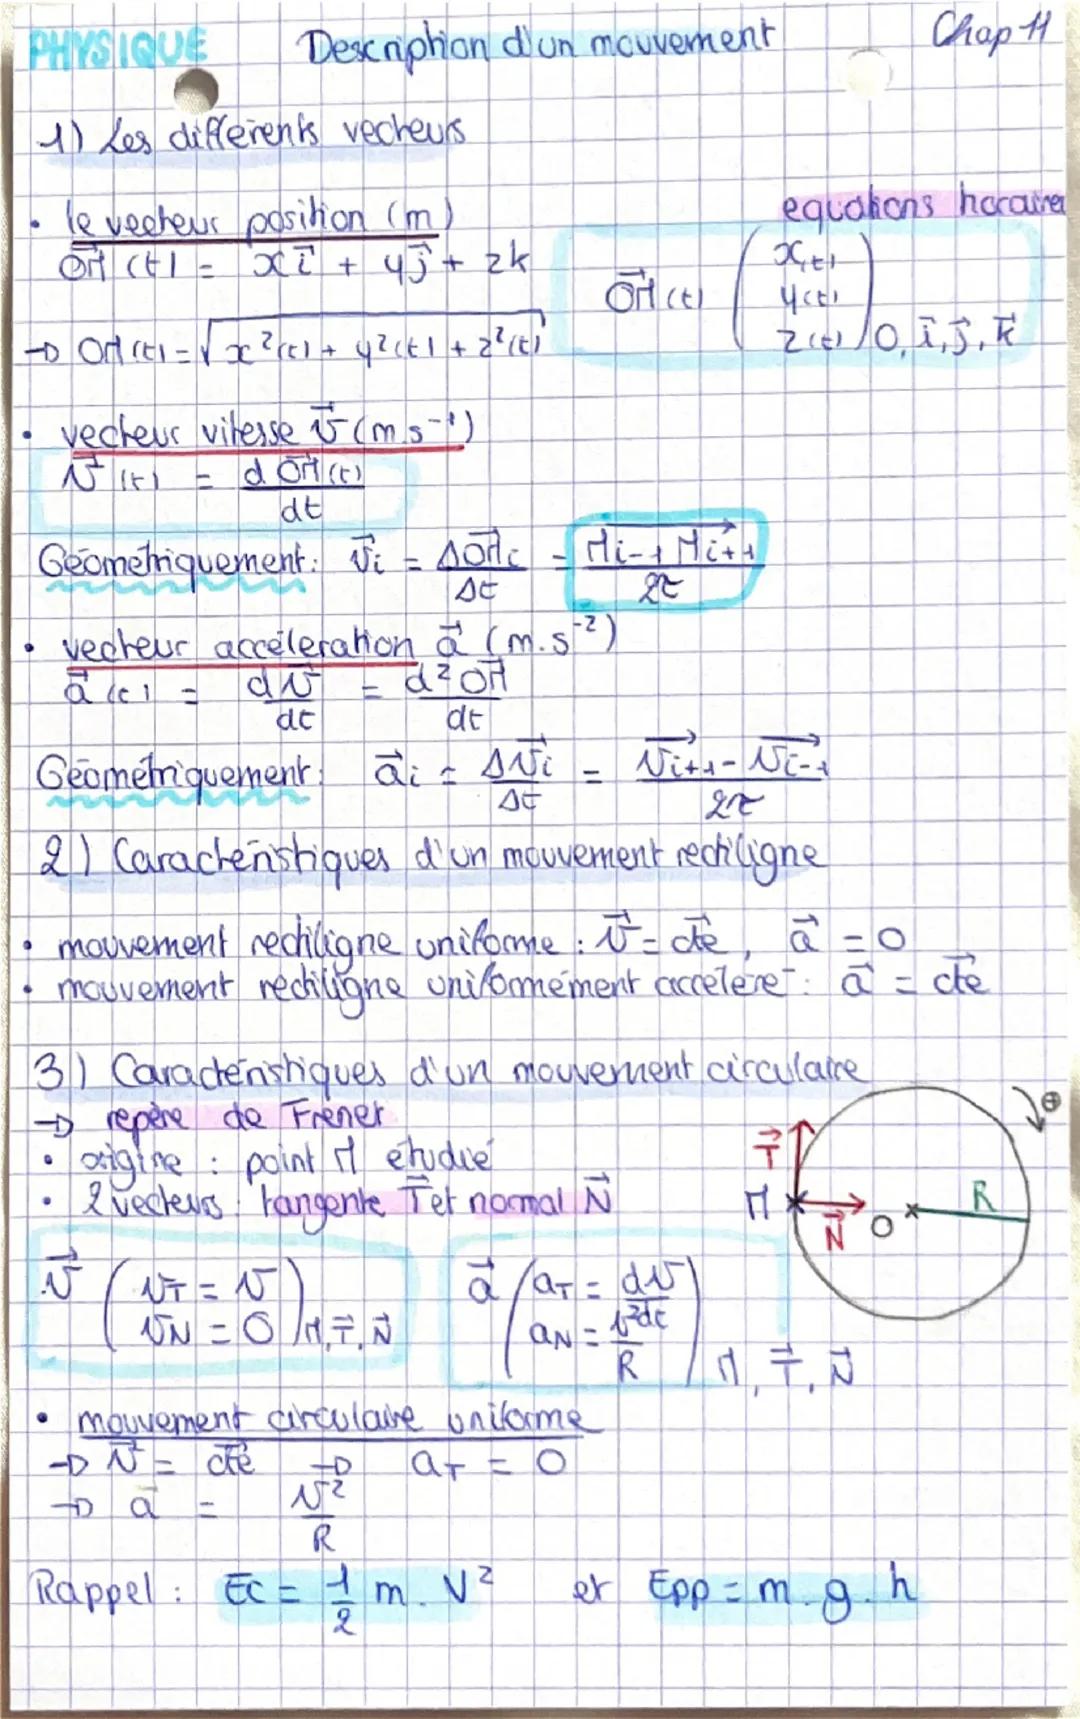 PHYSIQUE Description d'un mouvement Chap 11
1) Les différents vecteurs
• le vecteur position (m)
equations horaires
OM⃗ (t) = xi⃗ + yj⃗ + zk
OM⃗ (t) ( x(t) y(t) z(t) ) O, i⃗, j⃗, k⃗
→ OM (t) = √x²(t) + y²(t) + z²(t)
• vecteur vitesse v⃗ (m.s⁻¹)
v⃗ (t) = d OM⃗ (t) / dt
Géométriquement : v⃗i = ΔOM⃗i / Δt = Mi-1 Mi+1 / 2τ
• vecteur accéleration a⃗ (m.s⁻²)
a⃗ (t) = dv⃗ / dt = d² OM⃗ / dt
Géométriquement : a⃗i = Δv⃗i / Δt = v⃗i+1 - v⃗i-1 / 2τ
2) Caractéristiques d'un mouvement rectiligne
• mouvement rectiligne uniforme : v⃗ = cte⃗, a⃗ = 0
• mouvement rectiligne uniformément accéléré : a⃗ = cte⃗
3) Caractéristiques d'un mouvement circulaire
→ repère de Frenet
• origine : point M étudié
• 2 vecteurs : tangente T⃗ et normal N⃗
⊕
T⃗
M N⃗ O R
v⃗ ( vT = v vN = 0 ) M, T⃗, N⃗
a⃗ ( aT = dv / dt aN = v² / R ) M, T⃗, N⃗
• mouvement circulaire uniforme
→ v⃗ = cte⃗ → aT = 0
→ a = v² / R
Rappel : Ec = 1/2 m . V² et Epp = m . g . h